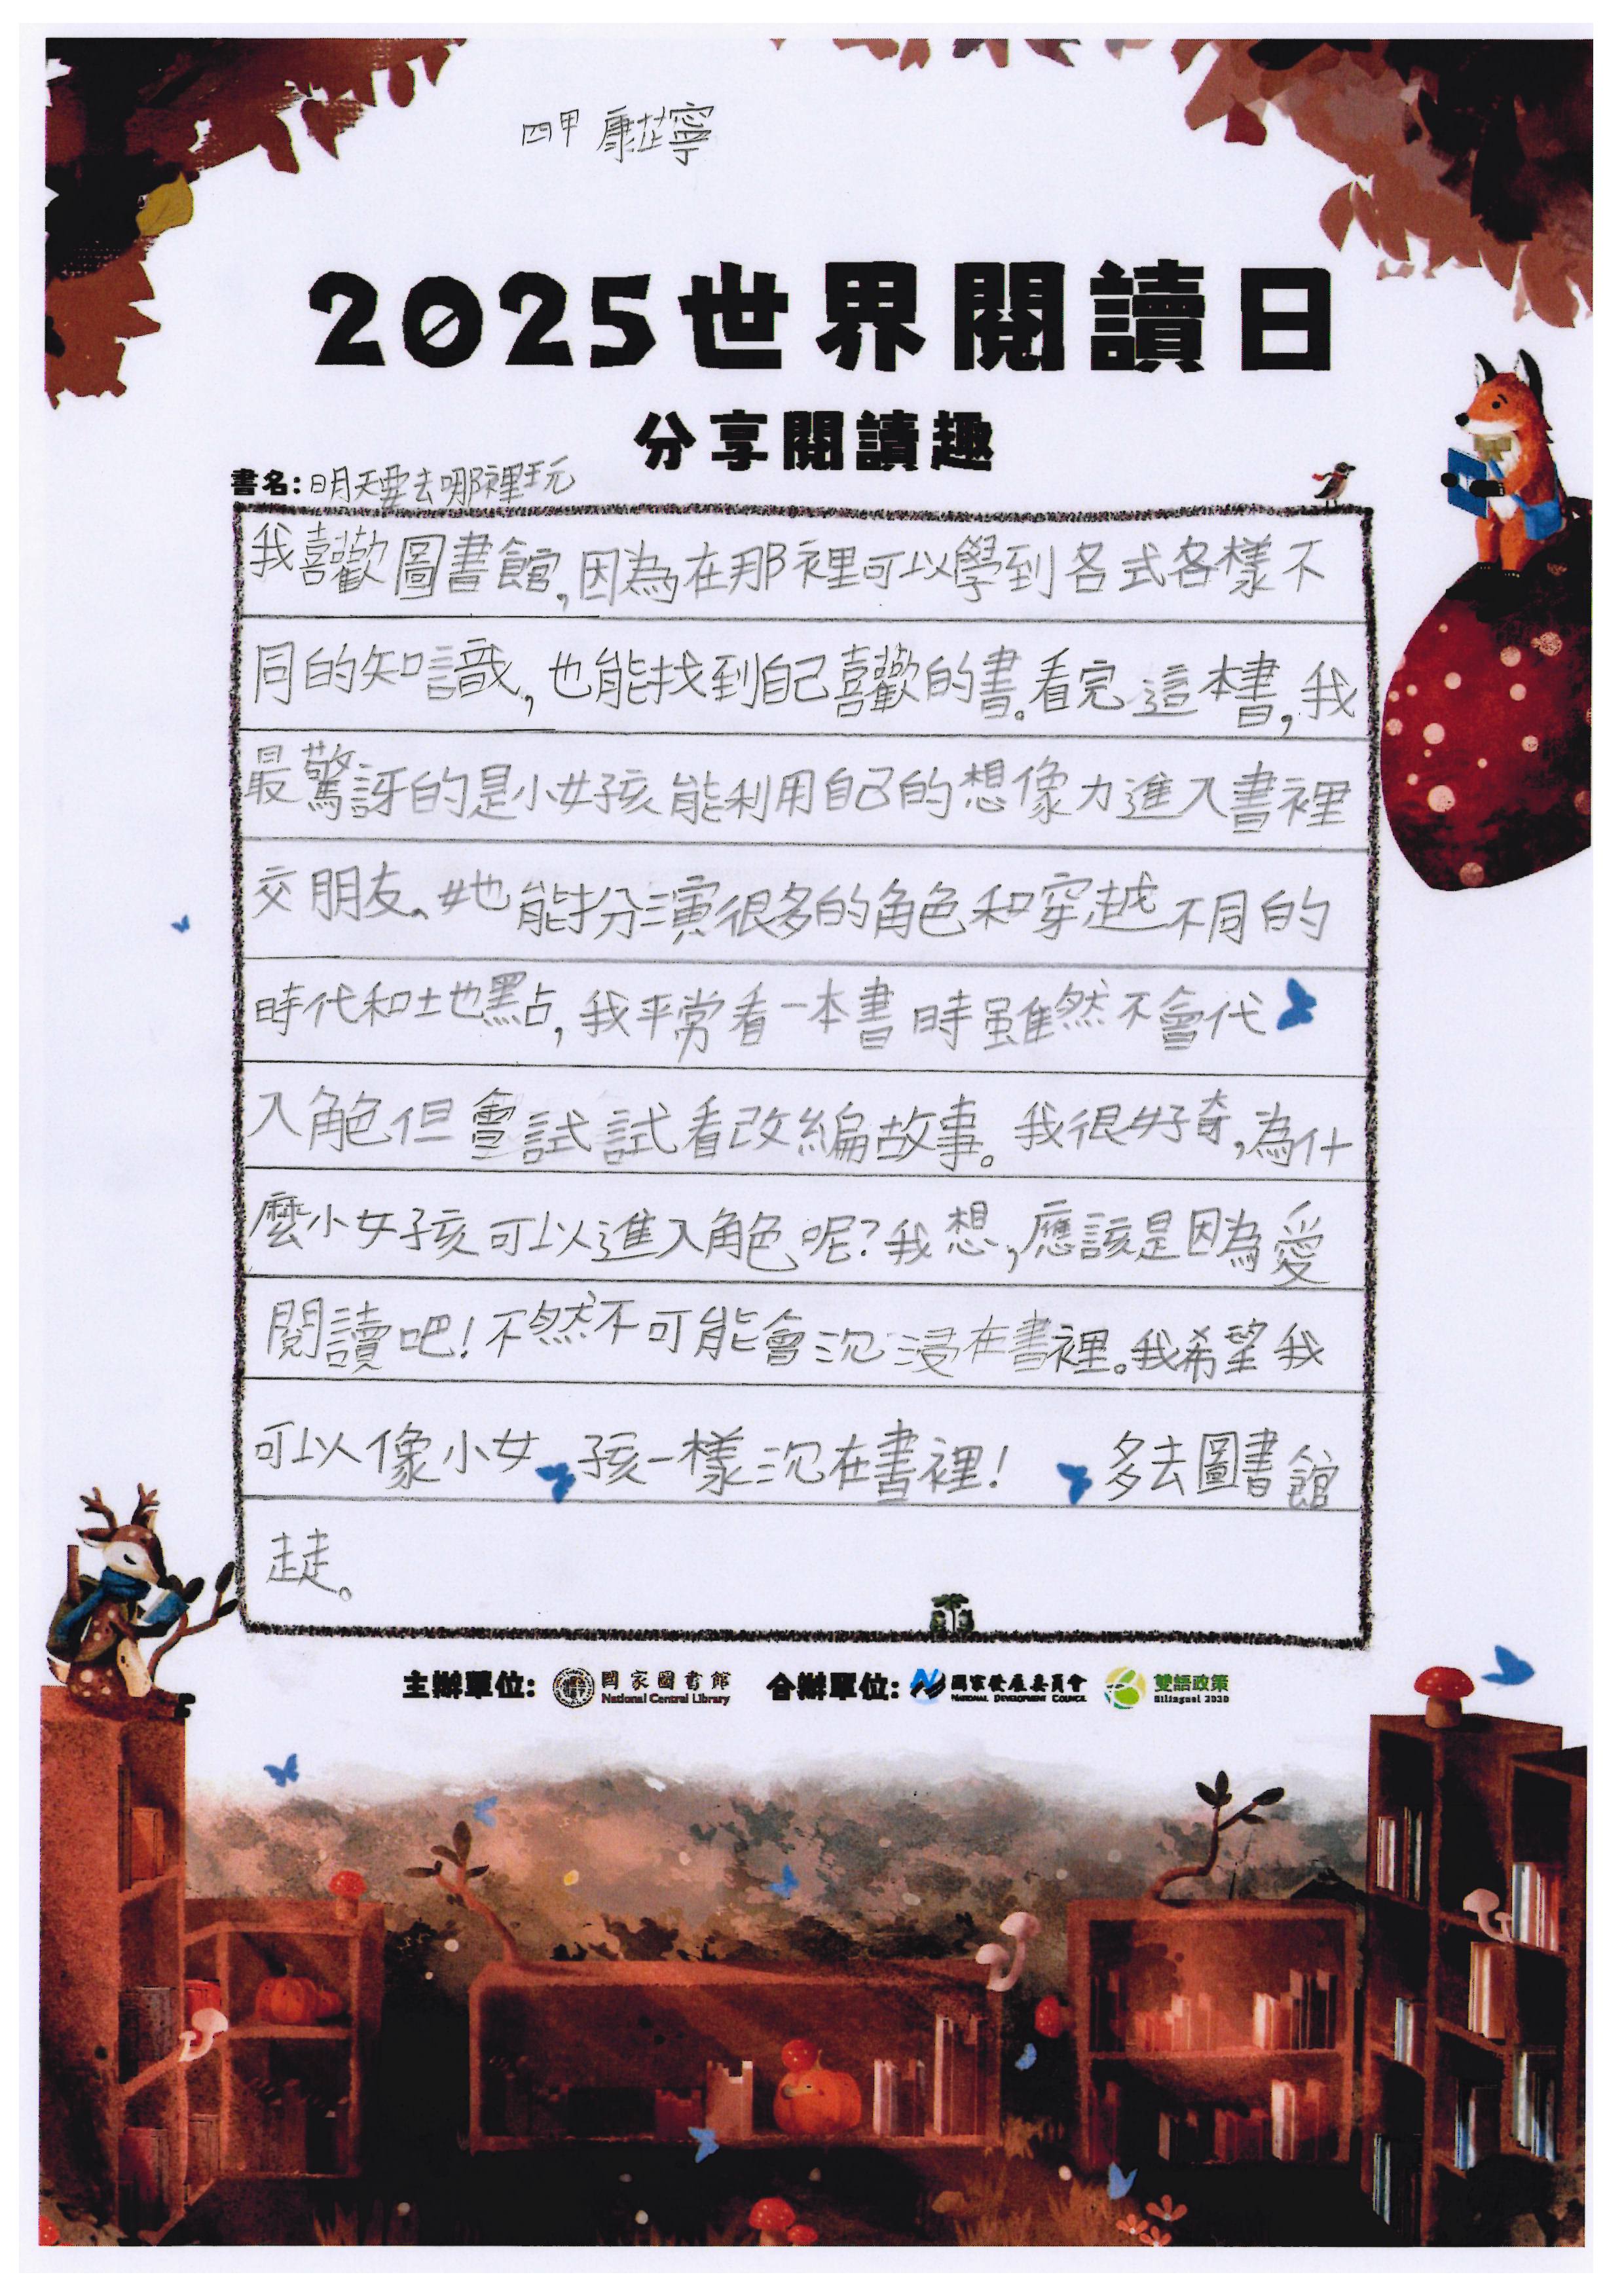 四甲 康芷寧
2025世界閱讀日
分享閱讀趣
書名:明天要去哪裡玩
我喜歡圖書館,因為在那裡可以學到各式各樣不
同的知識,也能找到自己喜歡的書。看完這本書,我
最驚訝的是小女孩能利用自己的想像力進入書裡
交朋友、她能扮演很多的角色和穿越不同的
時代和地點,我平常看一本書時雖然不會代
入角色但會試試看改編故事。我很好奇,為什
麼小女孩可以進入角色呢?我想,應該是因為愛
閱讀吧!不然不可能會沉浸在書裡。我希望我
可以像小女孩一樣沉在書裡! 多去圖書館
走走。
主辦單位: 國家圖書館 National Central Library 合辦單位: 國家發展委員會 National Development Council 雙語政策 Bilingual 2030